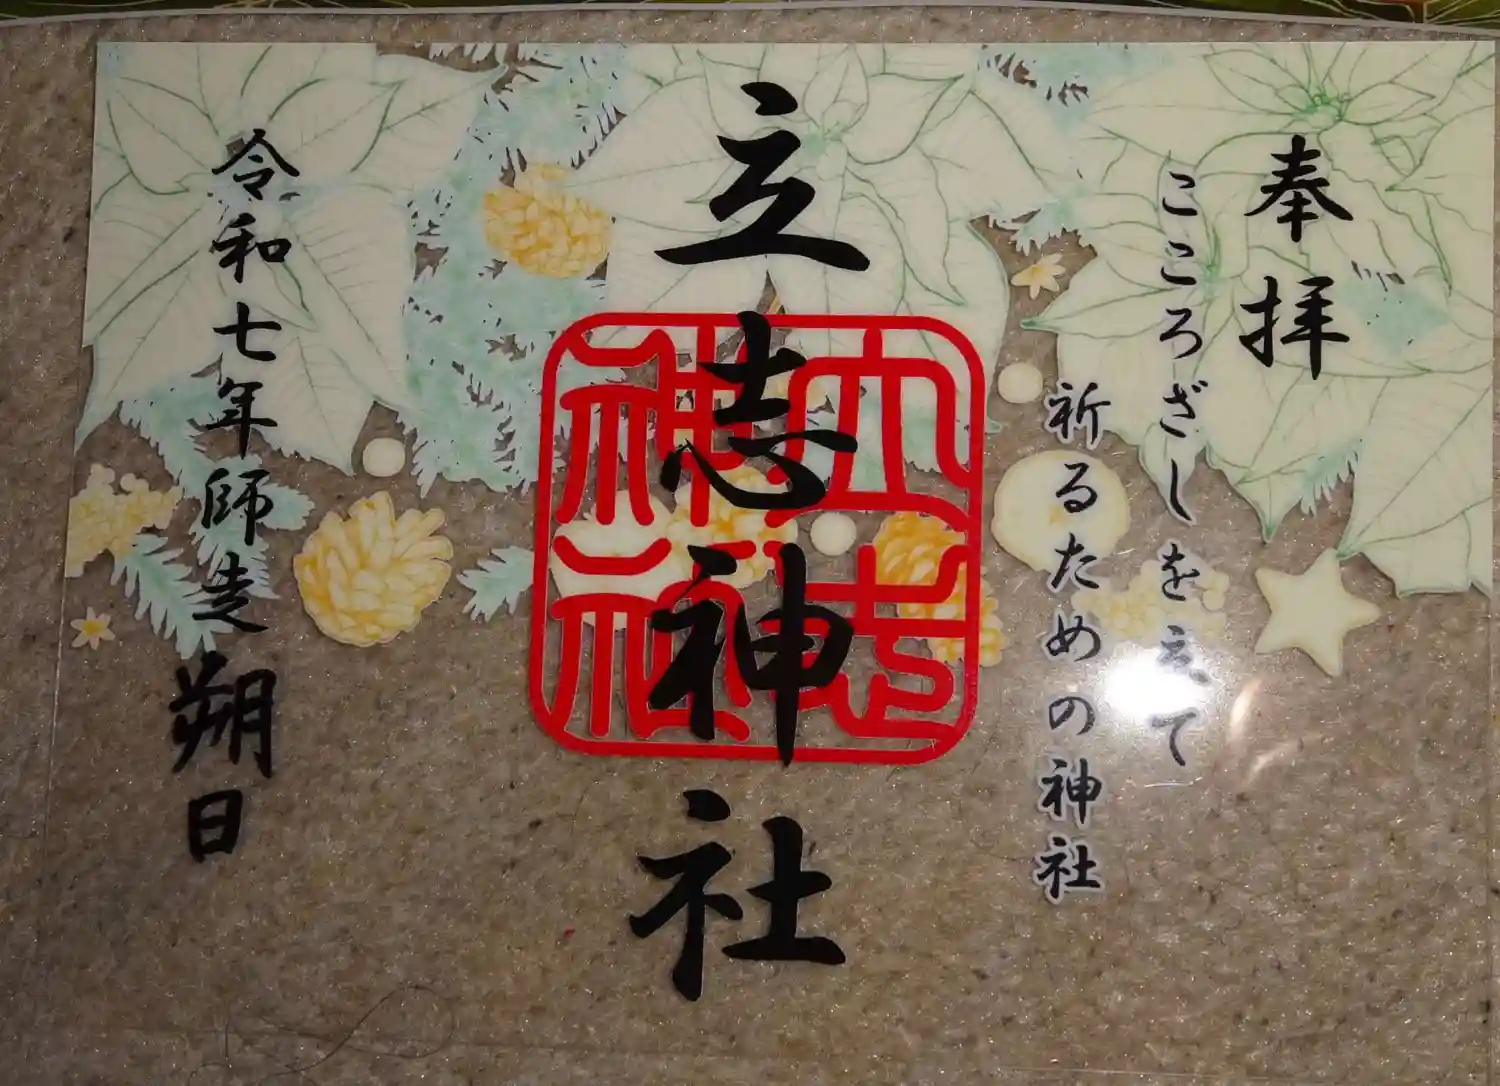 奉拝
こころざしを立て
祈るための神社
立志神社
立志
神社
令和七年師走朔日